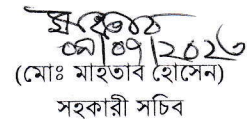 ০৯/০৭/২০২৩
(মোঃ মাহতাব হোসেন)
সহকারী সচিব